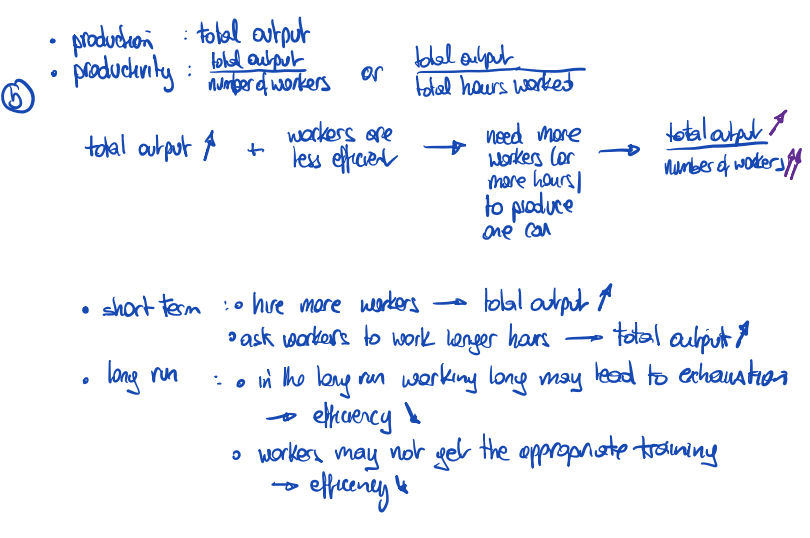 • production : total output
• productivity : total output / number of workers or total output / total hours worked
5
total output ↗ + workers are less efficient → need more workers (or more hours) to produce one car → total output ↗ / number of workers ↗↗
• short term : ∘ hire more workers → total output ↗
∘ ask workers to work longer hours → total output ↗
• long run : ∘ in the long run working long may lead to exhaustion
→ efficiency ↘
∘ workers may not get the appropriate training
→ efficency ↘